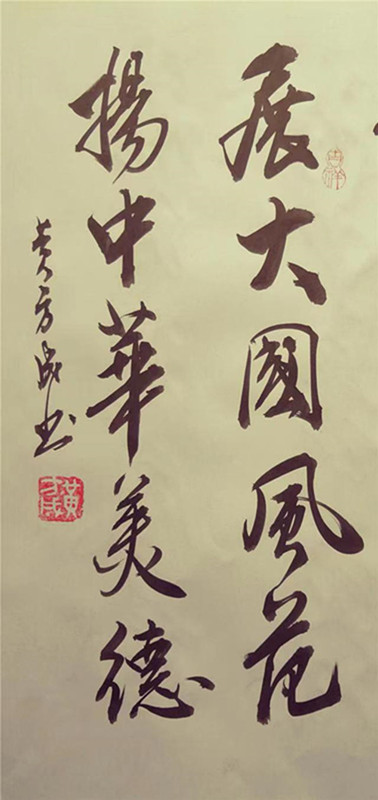 展大國風范
揚中華美德
黄方成书